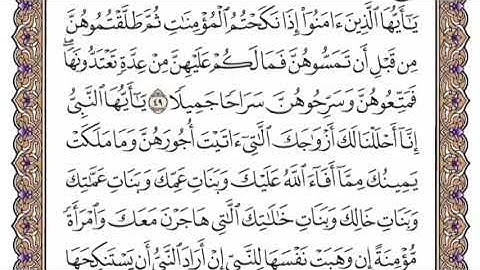 يَـٰٓأَيُّهَا ٱلَّذِينَ ءَامَنُوٓا۟ إِذَا نَكَحْتُمُ ٱلْمُؤْمِنَـٰتِ ثُمَّ طَلَّقْتُمُوهُنَّ
مِن قَبْلِ أَن تَمَسُّوهُنَّ فَمَا لَكُمْ عَلَيْهِنَّ مِنْ عِدَّةٍ تَعْتَدُّونَهَا ۖ
فَمَتِّعُوهُنَّ وَسَرِّحُوهُنَّ سَرَاحًا جَمِيلًا ٤٩ يَـٰٓأَيُّهَا ٱلنَّبِىُّ
إِنَّآ أَحْلَلْنَا لَكَ أَزْوَٰجَكَ ٱلَّـٰتِىٓ ءَاتَيْتَ أُجُورَهُنَّ وَمَا مَلَكَتْ
يَمِينُكَ مِمَّآ أَفَآءَ ٱللَّهُ عَلَيْكَ وَبَنَاتِ عَمِّكَ وَبَنَاتِ عَمَّـٰتِكَ
وَبَنَاتِ خَالِكَ وَبَنَاتِ خَـٰلَـٰتِكَ ٱلَّـٰتِى هَاجَرْنَ مَعَكَ وَٱمْرَأَةً
مُّؤْمِنَةً إِن وَهَبَتْ نَفْسَهَا لِلنَّبِىِّ إِنْ أَرَادَ ٱلنَّبِىُّ أَن يَسْتَنكِحَهَا